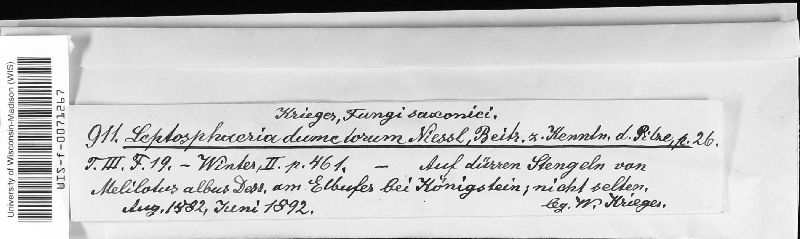 University of Wisconsin-Madison (WIS)
WIS-f-0071267
Krieger, Fungi saxonici.
911. Leptosphaeria dumetorum Niessl, Beitr. z. Kenntn. d. Pilze, p. 26.
T. III. F. 19. – Winter, II. p. 461. – Auf dürren Stengeln von
Melilotus albus Desr. am Elbufer bei Königstein; nicht selten.
Aug. 1882, Juni 1892. leg. W. Krieger.